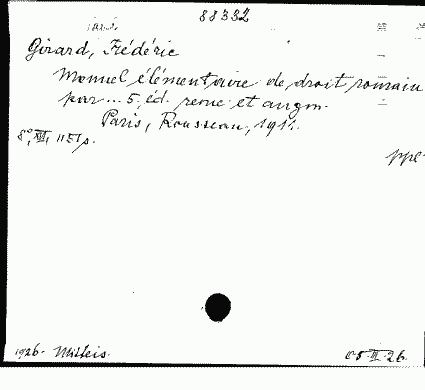 88332
Girard, Frédéric
Manuel élémentaire de droit romain
par... 5. éd. revue et augm.
Paris, Rousseau, 1911.
8°, XVI, 1151 p.
ppl
1926. Mitteis.
05. II. 26.